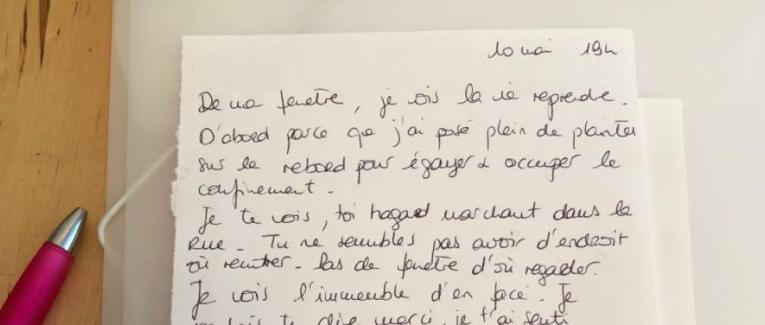 10 mai 19h
De ma fenêtre, je vois la vie reprendre.
D'abord parce que j'ai posé plein de plantes
sur le rebord pour égayer & occuper le
confinement.
Je te vois, toi hagard marchant dans la
rue. Tu ne sembles pas avoir d'endroit
où rentrer. Pas de fenêtre d'où regarder.
Je vois l'immeuble d'en face. Je
te dire merci, je t'ai senti